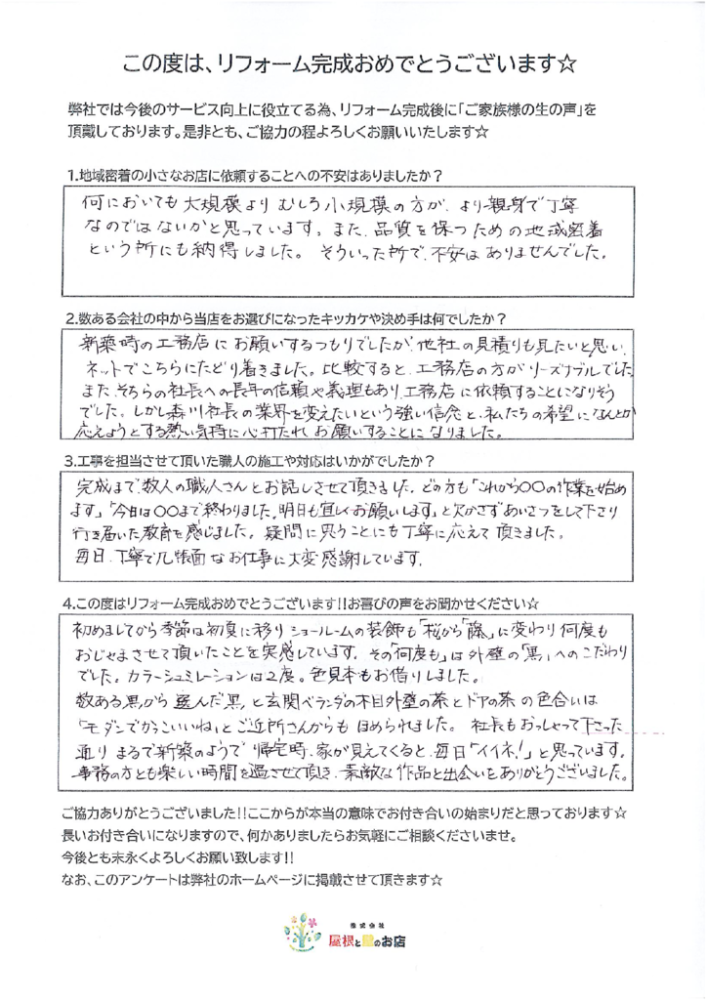 この度は、リフォーム完成おめでとうございます☆
弊社では今後のサービス向上に役立てる為、リフォーム完成後に「ご家族様の生の声」を
頂戴しております。是非とも、ご協力の程よろしくお願いいたします☆
1.地域密着の小さなお店に依頼することへの不安はありましたか？
何においても大規模よりむしろ小規模の方が、より親身で丁寧
なのではないかと思っています。また、品質を保つための地域密着
という所にも納得しました。そういった所で、不安はありませんでした。
2.数ある会社の中から当店をお選びになったキッカケや決め手は何でしたか？
新築時の工務店にお願いするつもりでしたが、他社の見積りも見たいと思い、
ネットでこちらにたどり着きました。比較すると、工務店の方がリーズナブルでした。
また、そちらの社長への長年の信頼や義理もあり、工務店に依頼することになりそう
でした。しかし森川社長の業界を変えたいという強い信念と、私たちの希望になんとか
応えようとする熱い気持に心打たれ、お願いすることになりました。
3.工事を担当させて頂いた職人の施工や対応はいかがでしたか？
完成まで、数人の職人さんとお話しさせて頂きました。どの方も「これから〇〇の作業を始め
ます」「今日は〇〇まで終わりました。明日も宜しくお願いします」と欠かさずあいさつをして下さり
行き届いた教育を感じました。疑問に思うことにも丁寧に応えて頂きました。
毎日、丁寧で几帳面なお仕事に大変感謝しています。
4.この度はリフォーム完成おめでとうございます!!お喜びの声をお聞かせください☆
初めましてから季節は初夏に移りショールームの装飾も「桜」から「藤」に変わり何度も
おじゃまさせて頂いたことを実感しています。その「何度も」は外壁の「黒」へのこだわり
でした。カラーシュミレーションは2度。色見本もお借りしました。
数ある黒から選んだ黒と玄関ベランダの木目外壁の茶とドアの茶の色合いは
「モダンでかっこいいね」とご近所さんからもほめられました。社長もおっしゃって下さった
通りまるで新築のようで帰宅時、家が見えてくると、毎日「イイネ！」と思っています。
事務の方とも楽しい時間を過させて頂き、素敵な作品と出会いをありがとうございました。
ご協力ありがとうございました!!ここからが本当の意味でお付き合いの始まりだと思っております☆
長いお付き合いになりますので、何かありましたらお気軽にご相談くださいませ。
今後とも末永くよろしくお願い致します!!
なお、このアンケートは弊社のホームページに掲載させて頂きます☆
株式会社
屋根と壁のお店